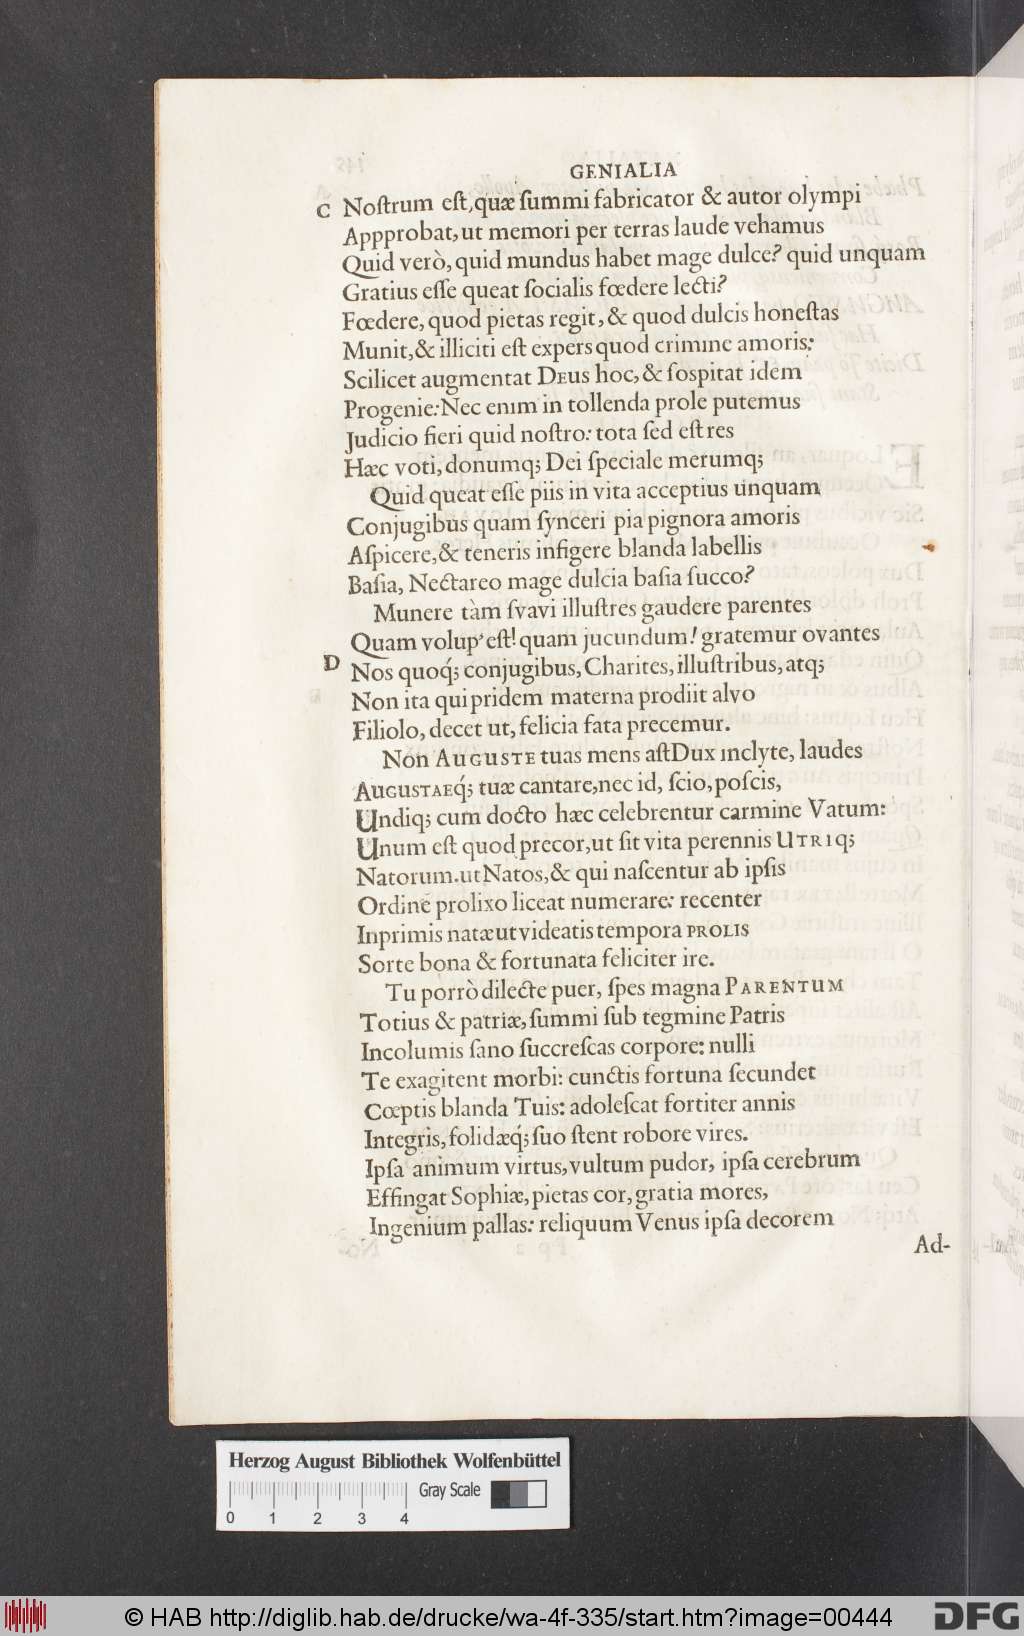 GENIALIA
C Noſtrum eſt, quæ ſummi fabricator & autor olympi
Appprobat, ut memori per terras laude vehamus
Quid verò, quid mundus habet mage dulce? quid unquam
Gratius eſſe queat ſocialis fœdere lecti?
Fœdere, quod pietas regit, & quod dulcis honeſtas
Munit, & illiciti eſt expers quod crimine amoris:
Scilicet augmentat DEUS hoc, & ſospitat idem
Progenie: Nec enim in tollenda prole putemus
Judicio fieri quid noſtro: tota ſed eſt res
Hæc voti, donumq; Dei ſpeciale merumq;
Quid queat eſſe piis in vita acceptius unquam
Conjugibus quam ſynceri pia pignora amoris
Aſpicere, & teneris infigere blanda labellis
Baſia, Nectareo mage dulcia baſia ſucco?
Munere tàm ſvavi illuſtres gaudere parentes
Quam volup' eſt! quam jucundum! gratemur ovantes
D Nos quoq́; conjugibus, Charites, illuſtribus, atq;
Non ita qui pridem materna prodiit alvo
Filiolo, decet ut, felicia fata precemur.
Non AUGUSTE tuas mens aſt Dux inclyte, laudes
AUGUSTAEq́; tuæ cantare, nec id, ſcio, poſcis,
Undiq; cum docto hæc celebrentur carmine Vatum:
Unum eſt quod precor, ut ſit vita perennis UTRIq;
Natorum. ut Natos, & qui naſcentur ab ipſis
Ordine prolixo liceat numerare: recenter
Inprimis natæ ut videatis tempora PROLIS
Sorte bona & fortunata feliciter ire.
Tu porrò dilecte puer, ſpes magna PARENTUM
Totius & patriæ, ſummi ſub tegmine Patris
Incolumis ſano ſuccreſcas corpore: nulli
Te exagitent morbi: cunctis fortuna ſecundet
Cœptis blanda Tuis: adoleſcat fortiter annis
Integris, ſolidæq́; ſuo ſtent robore vires.
Ipſa animum virtus, vultum pudor, ipſa cerebrum
Effingat Sophiæ, pietas cor, gratia mores,
Ingenium pallas: reliquum Venus ipſa decorem
Ad-
Herzog August Bibliothek Wolfenbüttel
Gray Scale
0 1 2 3 4
© HAB http://diglib.hab.de/drucke/wa-4f-335/start.htm?image=00444
DFG